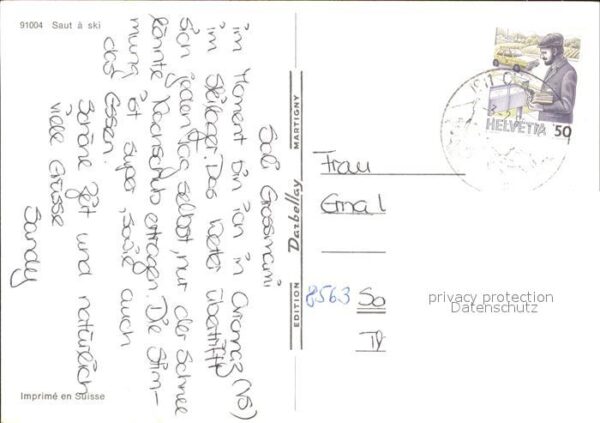 91004 Saut à ski
Sali Grossmami
im Moment bin ich in (VS)
im Skilager. Das Wetter übertrifft
sich jeden Tag selbst, nur der Schnee
könnte Nachschub ertragen. Die Stim-
mung ist super, sowie auch
das Essen.
Schöne Zeit und natürlich
viele Grüsse
Sandy
Imprimé en Suisse
EDITION Darbellay MARTIGNY
HELVETIA 50
Frau
8563
privacy protection
Datenschutz